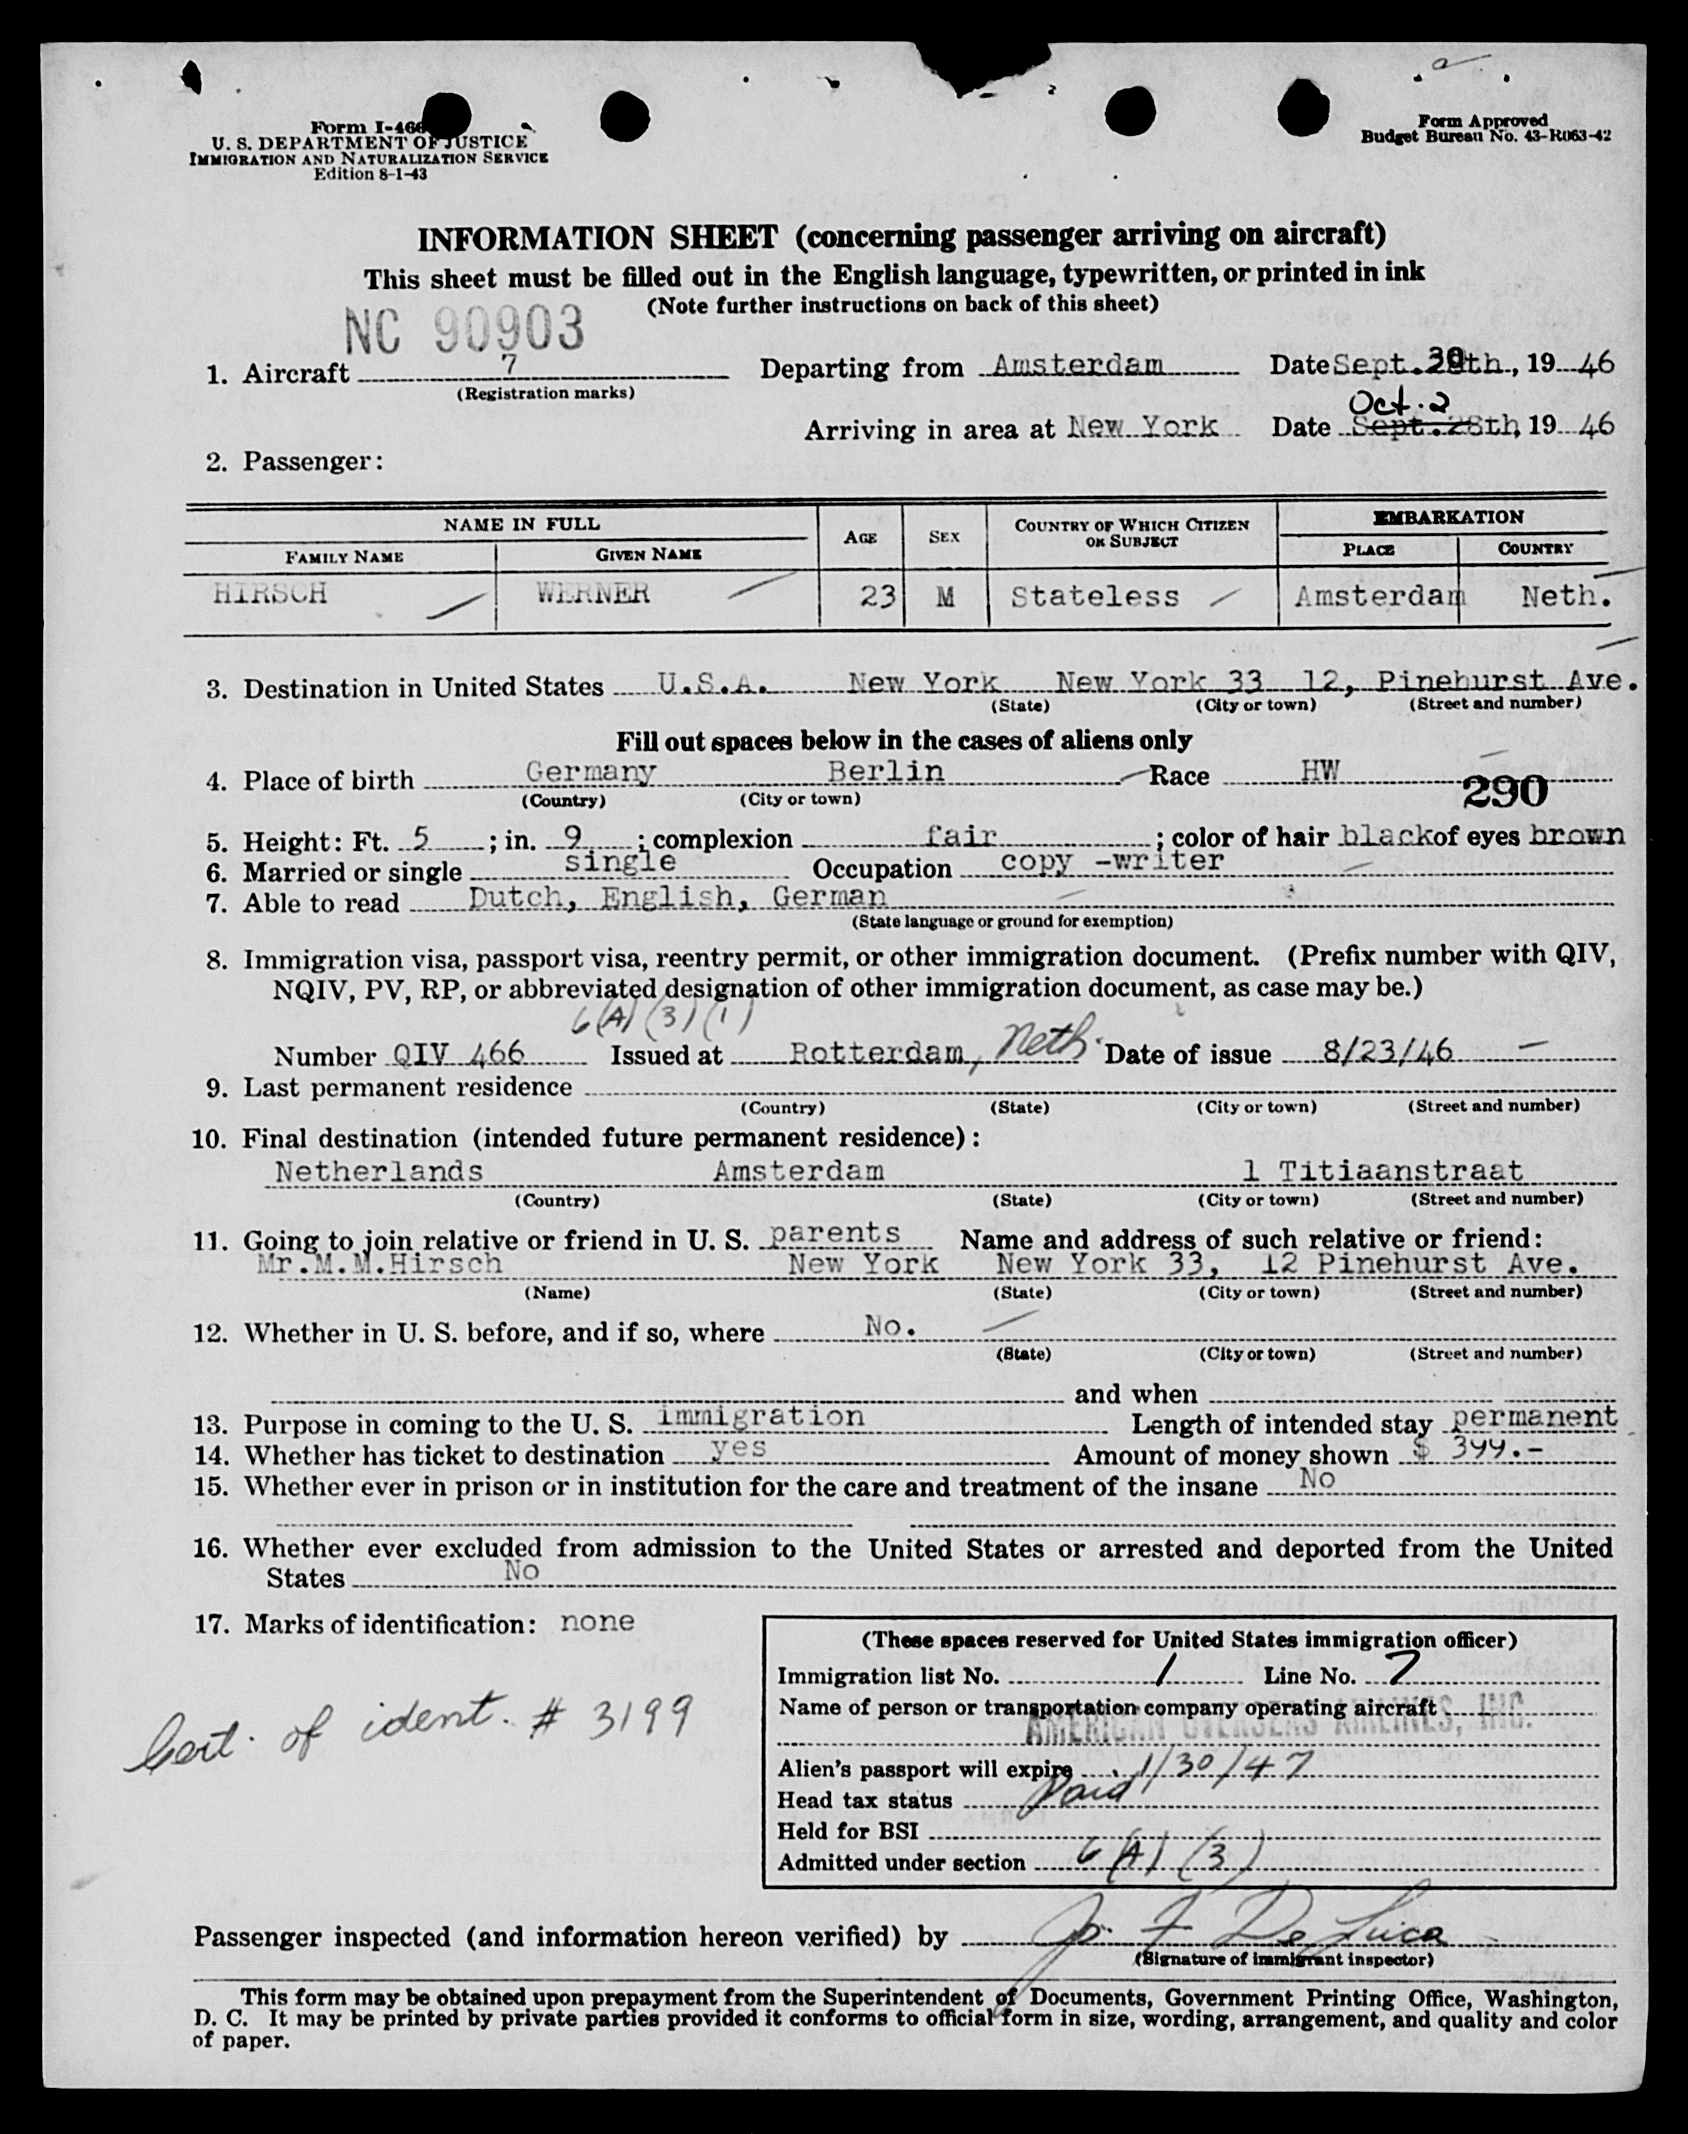 a
Form I-466
U. S. DEPARTMENT OF JUSTICE
IMMIGRATION AND NATURALIZATION SERVICE
Edition 8-1-43
Form Approved
Budget Bureau No. 43-R063-42
INFORMATION SHEET (concerning passenger arriving on aircraft)
This sheet must be filled out in the English language, typewritten, or printed in ink
(Note further instructions on back of this sheet)
NC 90903
1. Aircraft 7 Departing from Amsterdam Date Sept. 30th, 19 46
(Registration marks)
Oct. 2
Arriving in area at New York Date Sept. 28th, 19 46
2. Passenger:
NAME IN FULL AGE SEX COUNTRY OF WHICH CITIZEN OR SUBJECT EMBARKATION
FAMILY NAME GIVEN NAME PLACE COUNTRY
HIRSCH WERNER 23 M Stateless Amsterdam Neth.
3. Destination in United States U.S.A. New York New York 33 12, Pinehurst Ave.
(State) (City or town) (Street and number)
Fill out spaces below in the cases of aliens only
4. Place of birth Germany Berlin Race HW 290
(Country) (City or town)
5. Height: Ft. 5 ; in. 9 ; complexion fair ; color of hair black of eyes brown
6. Married or single single Occupation copy -writer
7. Able to read Dutch, English, German
(State language or ground for exemption)
8. Immigration visa, passport visa, reentry permit, or other immigration document. (Prefix number with QIV,
NQIV, PV, RP, or abbreviated designation of other immigration document, as case may be.)
6 (A) (3) (1)
Number QIV 466 Issued at Rotterdam, Neth. Date of issue 8/23/46
9. Last permanent residence
(Country) (State) (City or town) (Street and number)
10. Final destination (intended future permanent residence):
Netherlands Amsterdam 1 Titiaanstraat
(Country) (State) (City or town) (Street and number)
11. Going to join relative or friend in U. S. parents Name and address of such relative or friend:
Mr.M.M.Hirsch New York New York 33, 12 Pinehurst Ave.
(Name) (State) (City or town) (Street and number)
12. Whether in U. S. before, and if so, where No.
(State) (City or town) (Street and number)
and when
13. Purpose in coming to the U. S. immigration Length of intended stay permanent
14. Whether has ticket to destination yes Amount of money shown $ 399.-
15. Whether ever in prison or in institution for the care and treatment of the insane No
16. Whether ever excluded from admission to the United States or arrested and deported from the United
States No
17. Marks of identification: none
Cert. of ident. # 3199
(These spaces reserved for United States immigration officer)
Immigration list No. 1 Line No. 7
Name of person or transportation company operating aircraft
AMERICAN OVERSEAS AIRLINES, INC.
Alien's passport will expire 1/30/47
Head tax status Paid
Held for BSI
Admitted under section 6 (A) (3)
Passenger inspected (and information hereon verified) by Jo. F. De Luca
(Signature of immigrant inspector)
This form may be obtained upon prepayment from the Superintendent of Documents, Government Printing Office, Washington,
D. C. It may be printed by private parties provided it conforms to official form in size, wording, arrangement, and quality and color
of paper.